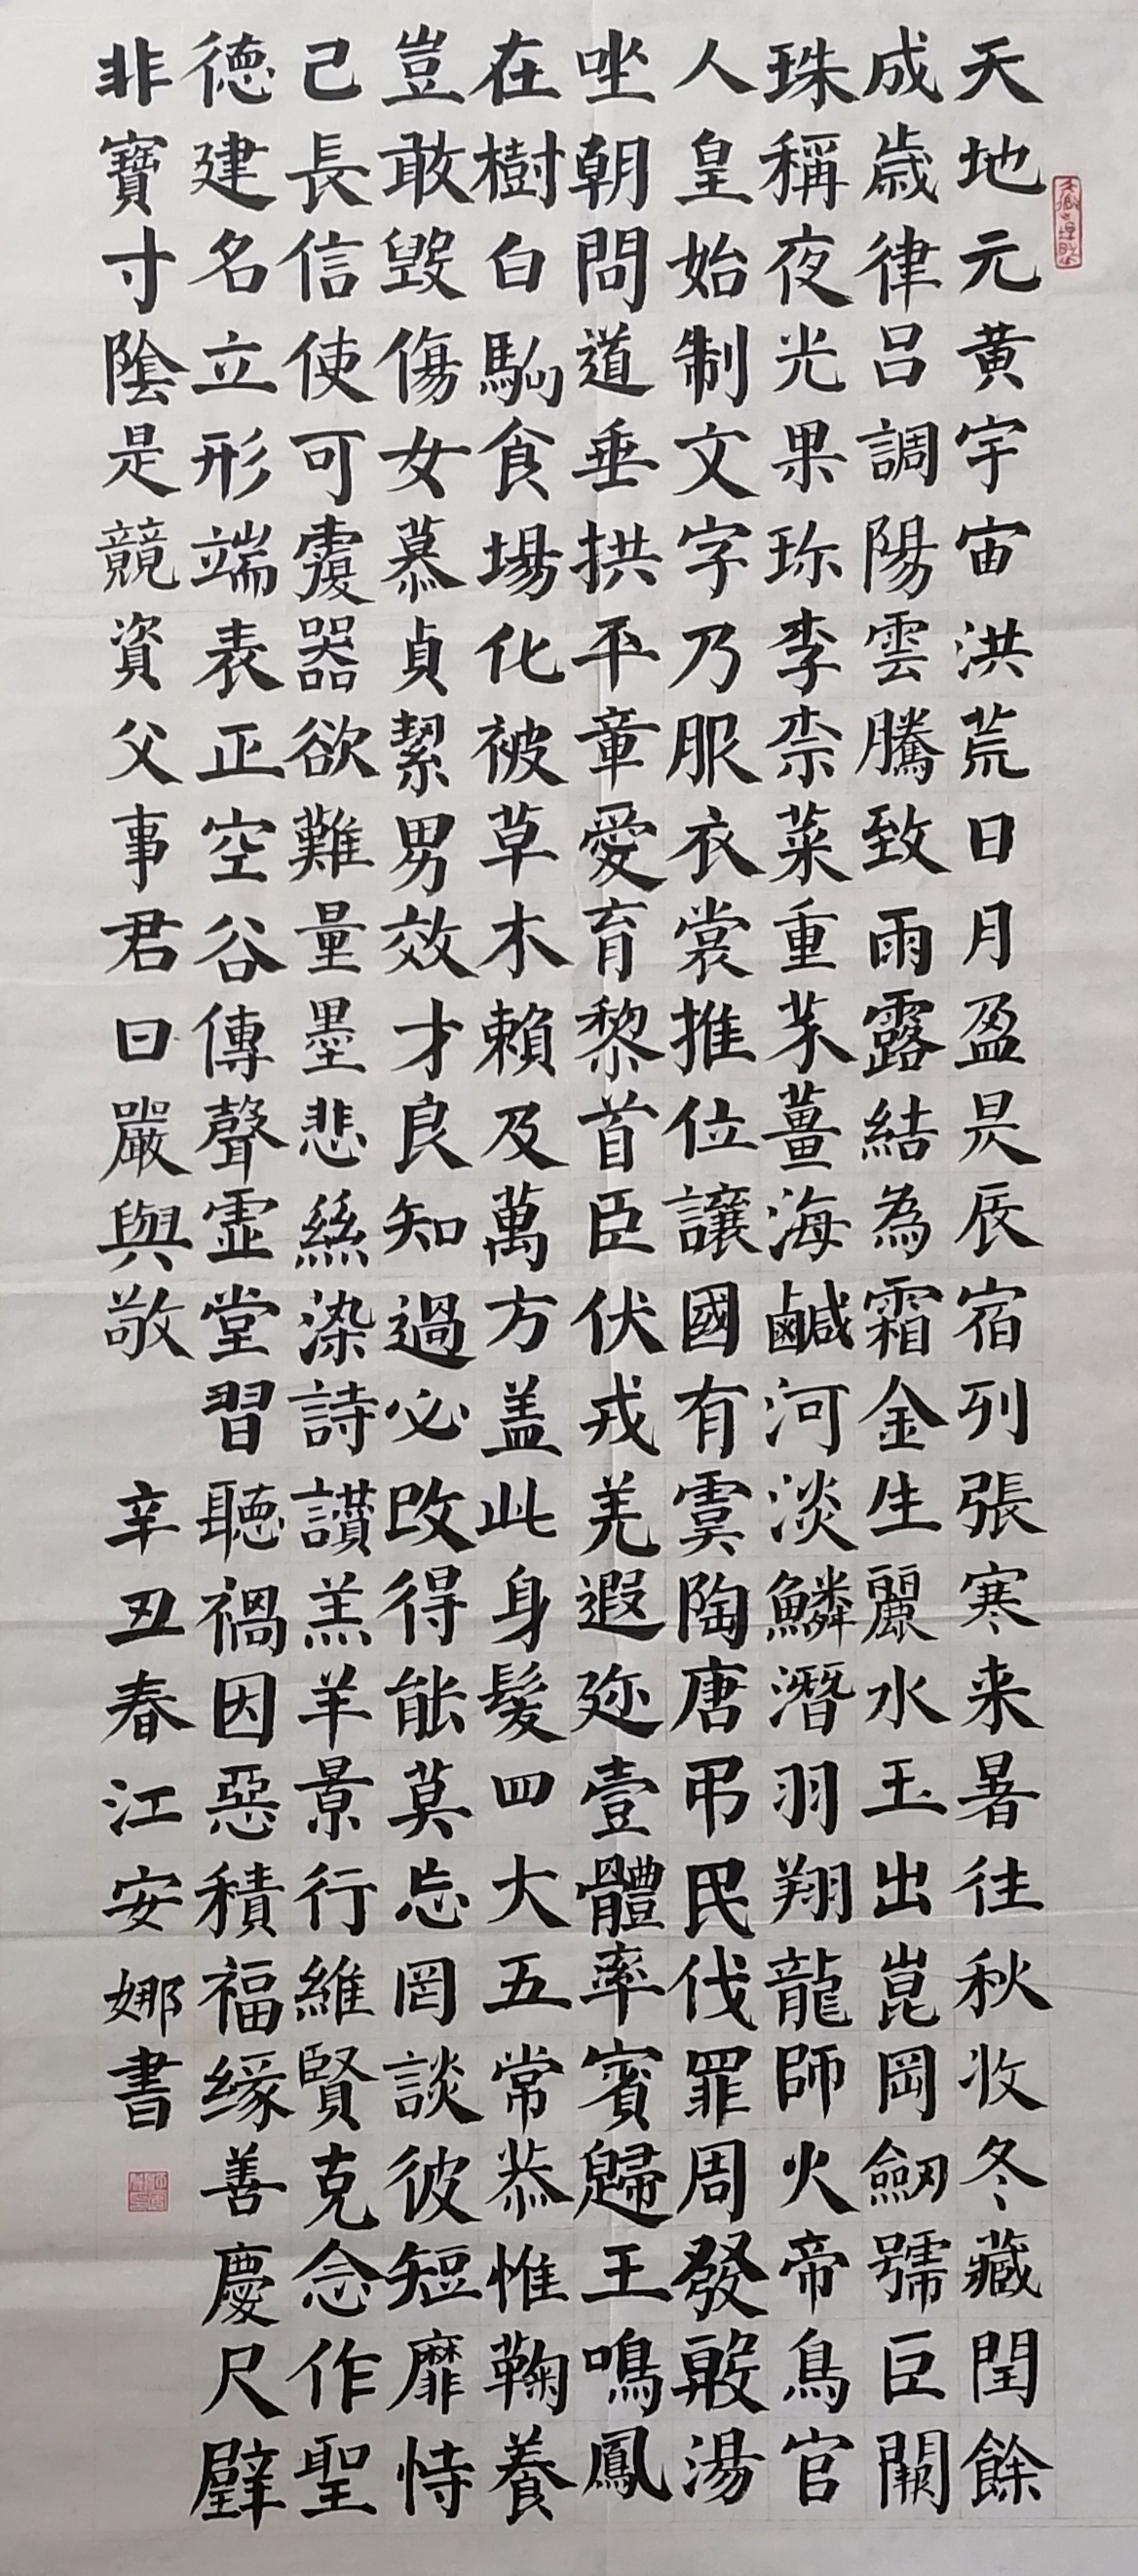 天地元黄宇宙洪荒日月盈昃辰宿列張寒来暑往秋收冬藏閏餘
成歲律吕調陽雲騰致雨露結為霜金生麗水玉出崑岡劒號巨闕
珠稱夜光果珎李柰菜重芥薑海鹹河淡鱗潛羽翔龍師火帝鳥官
人皇始制文字乃服衣裳推位讓國有虞陶唐弔民伐罪周發殷湯
坐朝問道垂拱平章愛育黎首臣伏戎羌遐迩壹體率賓歸王鳴鳳
在樹白駒食場化被草木賴及萬方盖此身髮四大五常恭惟鞠養
豈敢毀傷女慕貞絜男效才良知過必改得能莫忘罔談彼短靡恃
己長信使可覆器欲難量墨悲絲染詩讃羔羊景行維賢克念作聖
德建名立形端表正空谷傳聲虛堂習聽禍因惡積福緣善慶尺璧
非寶寸陰是競資父事君曰嚴與敬
辛丑春江安娜書